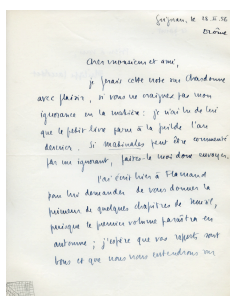 Grignan, le 28.II.56
Drôme
Cher monsieur et ami,
je ferais cette note sur Chardonne
avec plaisir, si vous ne craignez pas mon
ignorance en la matière : je n'ai lu de lui
que le petit livre paru à la guilde l'an
dernier. Si matinales peut être commenté
par un ignorant, faites-le moi donc envoyer.
J'ai écrit hier à Flamand
pour lui demander de vous donner la
primeur de quelques chapitres de
puisque le premier volume paraîtra en
automne ; j'espère que vos rapports sont
bons et que nous nous entendrons en